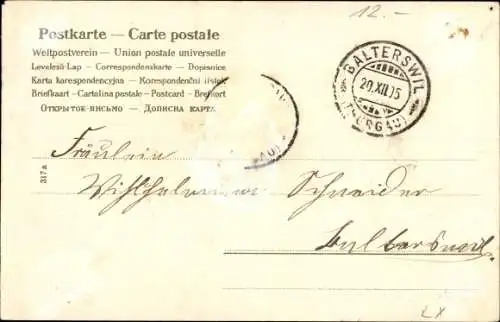 12.-
Postkarte — Carte postale
Weltpostverein — Union postale universelle
Levelező-Lap — Correspondenskarte — Dopisnice
Karta korespondencyjna — Korespondenční lístek
Briefkaart — Cartolina postale — Postcard — Brefkort
Открытое-письмо — Дописна карта
BALTERSWIL
20.XII.05
(THURGAU)
Fräulein
Wihlhelmine Schneider
Balterswil
317a